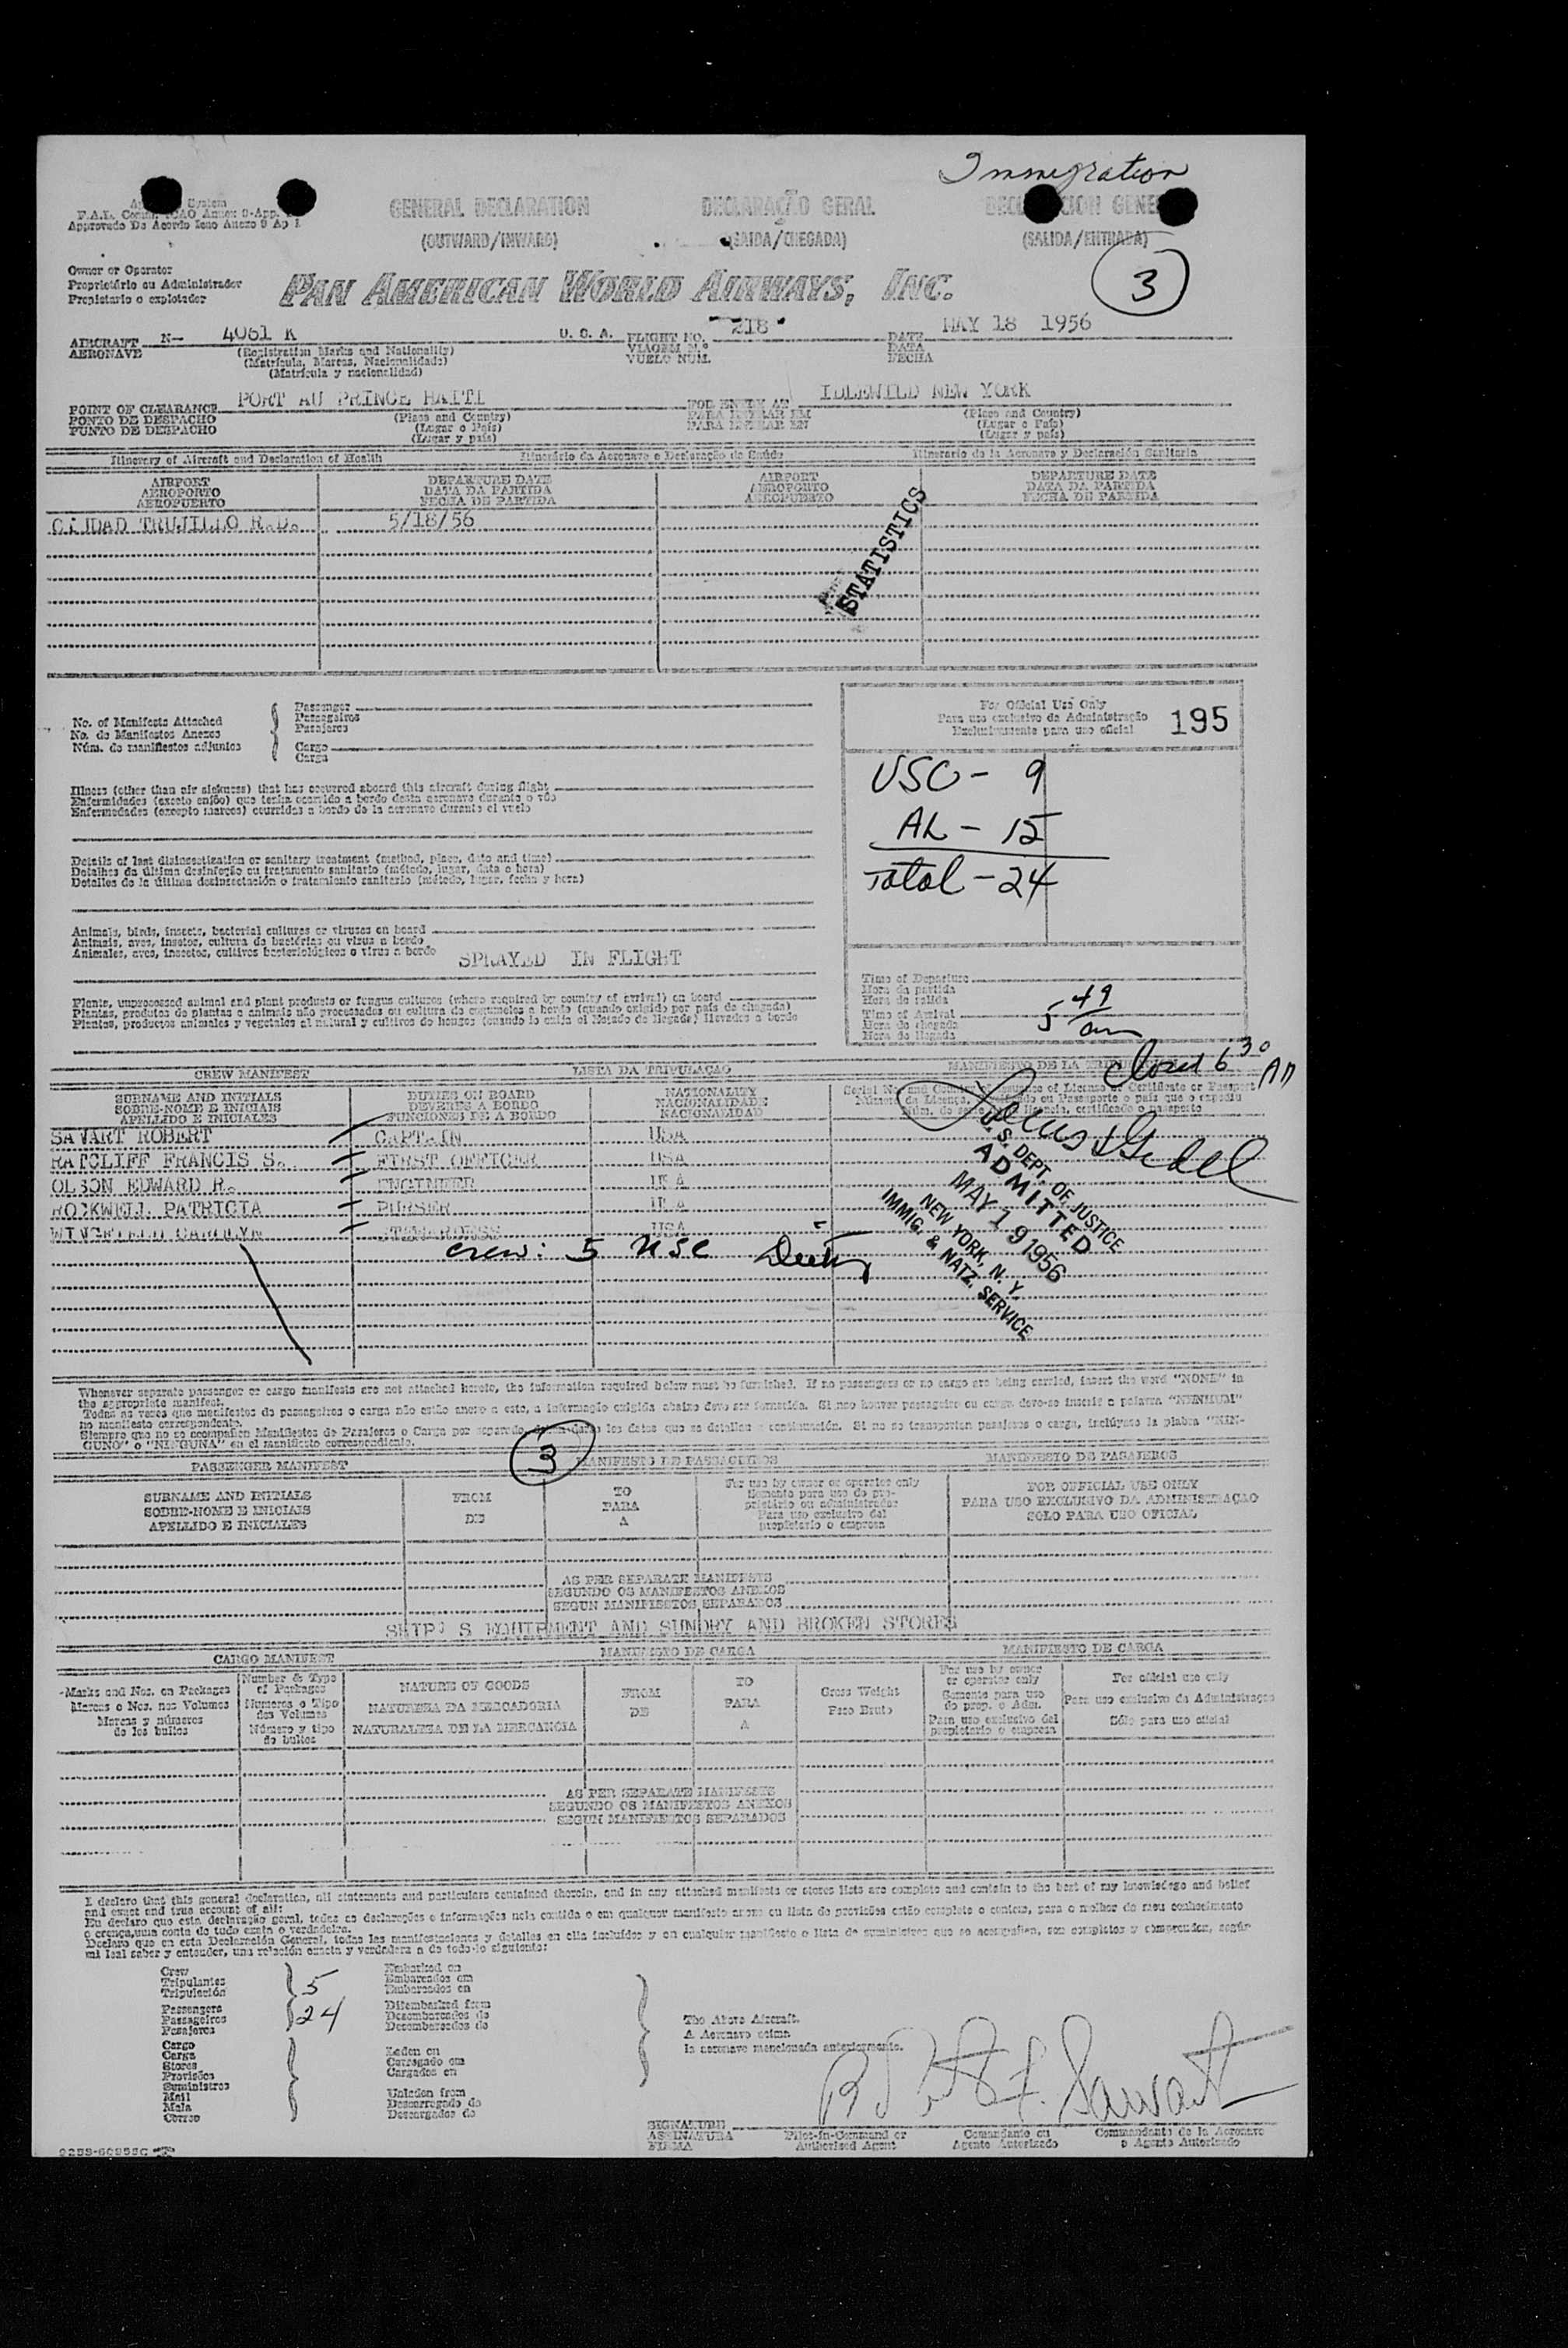 Immigration
System
F.A.L. ICAO Annex 9-App. 1
Approvado De Acordo Anexo 9 Ap 1
GENERAL DECLARATION
DECLARAÇÃO GERAL
(OUTWARD/INWARD)
(SAIDA/CHEGADA)
(SALIDA/ENTRADA)
3
Owner or Operator
Proprietário ou Administrador
Propietario o explotador
PAN AMERICAN WORLD AIRWAYS, INC.
AIRCRAFT N- 4061 K U. S. A. FLIGHT NO. 218 DATE MAY 18 1956
AERONAVE (Registration Marks and Nationality) VIAGEM N.º DATA
(Matrícula, Marcas, Nacionalidade) VUELO NUM. FECHA
(Matrícula y nacionalidad)
POINT OF CLEARANCE PORT AU PRINCE HAITI FOR ENTRY AT IDLEWILD NEW YORK
PONTO DE DESPACHO (Place and Country) PARA ENTRAR EM (Place and Country)
PUNTO DE DESPACHO (Lugar e País) PARA ENTRAR EN (Lugar e País)
(Lugar y país) (Lugar y país)
Itinerary of Aircraft and Declaration of Health Itinerário da Aeronave e Declaração de Saúde Itinerario de la Aeronave y Declaración Sanitaria
AIRPORT DEPARTURE DATE AIRPORT DEPARTURE DATE
AEROPORTO DATA DA PARTIDA AEROPORTO DATA DA PARTIDA
AEROPUERTO FECHA DE PARTIDA AEROPUERTO FECHA DE PARTIDA
CIUDAD TRUJILLO R.D. 5/18/56
STATISTICS
No. of Manifests Attached
No. de Manifestos Anexos
Núm. de manifiestos adjuntos
Passenger
Passageiros
Pasajeros
Cargo
Carga
For Official Use Only
Para uso exclusivo da Administração
Exclusivamente para uso oficial
195
USC - 9
AL - 15
Total - 24
Illness (other than air sickness) that has occurred aboard this aircraft during flight
Enfermidades (exceto enjôo) que tenha ocorrido a bordo desta aeronave durante o vôo
Enfermedades (excepto mareos) ocurridas a bordo de la aeronave durante el vuelo
Details of last disinsectization or sanitary treatment (method, place, date and time)
Detalhes da última desinfeção ou tratamento sanitario (método, lugar, data e hora)
Detalles de la última desinsectación o tratamiento sanitario (método, lugar, fecha y hora)
Animals, birds, insects, bacterial cultures or viruses on board
Animais, aves, insetos, cultura de bactérias ou virus a bordo
Animales, aves, insectos, cultivos bacteriológicos o virus a bordo
SPRAYED IN FLIGHT
Plants, unprocessed animal and plant products or fungus cultures (where required by country of arrival) on board
Plantas, produtos de plantas e animais não processados ou cultura de cogumelos a bordo (quando exigido por país de chegada)
Plantas, productos animales y vegetales al natural y cultivos de hongos (cuando lo exija el Estado de llegada) llevados a bordo
Time of Departure
Hora da partida
Hora de salida
Time of Arrival
Hora de chegada
Hora de llegada
5 49 am
Closed 6 30 AM
CREW MANIFEST LISTA DA TRIPULAÇAO MANIFIESTO DE LA
SURNAME AND INITIALS DUTIES ON BOARD NATIONALITY
SOBRE-NOME E INICIAIS DEVERES A BORDO NACIONALIDADE
APELLIDO E INICIALES FUNCIONES DE A BORDO NACIONALIDAD
SAVART ROBERT CAPTAIN USA
RATCLIFF FRANCIS S. FIRST OFFICER USA
OLSON EDWARD R. ENGINEER USA
ROCKWELL PATRICIA PURSER USA
WINGFIELD CAROLYN STEWARDESS USA
crew: 5 USC
U. S. DEPT. OF JUSTICE
ADMITTED
MAY 19 1956
NEW YORK, N. Y.
IMMIG. & NATZ. SERVICE
Whenever separate passenger or cargo manifests are not attached hereto, the information required below must be furnished. If no passengers or no cargo are being carried, insert the word "NONE" in
the appropriate manifest.
Todas as vezes que manifestos de passageiros o carga não estão anexo a esto, a informação exigida abaixo deve ser fornecida. Si nao houver passageiro ou carga deve-se inserir a palavra "NENHUM"
no manifesto correspondente.
Siempre que no se acompañen Manifiestos de Pasajeros o Carga por separado, los datos que se detallan a continuación. Si no se transportan pasajeros o carga, inclúyase la plabra "NIN-
GUNO" o "NINGUNA" en el manifiesto correspondiente.
3
PASSENGER MANIFEST MANIFESTO DE PASSAGEIROS MANIFIESTO DE PASAJEROS
SURNAME AND INITIALS
SOBRE-NOME E INICIAIS
APELLIDO E INICIALES
FROM
DE
TO
PARA
A
For use by owner or operator only
Somente para uso do pro-
prietário ou administrador
Para uso exclusivo del
propietario o empresa
FOR OFFICIAL USE ONLY
PARA USO EXCLUSIVO DA ADMINISTRAÇAO
SOLO PARA USO OFICIAL
AS PER SEPARATE MANIFESTS
SEGUNDO OS MANIFESTOS ANEXOS
SEGUN MANIFIESTOS SEPARADOS
SHIP'S EQUIPMENT AND SUNDRY AND BROKEN STORES
CARGO MANIFEST MANIFESTO DE CARGA MANIFIESTO DE CARGA
Marks and Nos. on Packages
Marcas e Nos. nos Volumes
Marcas y números
de los bultos
Number & Type
of Packages
Numeros e Tipo
dos Volumes
Número y tipo
de bultos
NATURE OF GOODS
NATUREZA DA MERCADORIA
NATURALEZA DE LA MERCANCIA
FROM
DE
TO
PARA
A
Gross Weight
Peso Bruto
For use by owner
or operator only
Somente para uso
do prop. o Adm.
Para uso exclusivo del
propietario o empresa
For official use only
Para uso exclusivo da Administraçao
Sólo para uso oficial
AS PER SEPARATE MANIFESTS
SEGUNDO OS MANIFESTOS ANEXOS
SEGUN MANIFIESTOS SEPARADOS
I declare that this general declaration, all statements and particulars contained therein, and in any attached manifests or stores lists are complete and contain to the best of my knowledge and belief
and exact and true account of all:
Eu declaro que esta declaração geral, todas as declarações e informações nela contida o em qualquer manifesto anexo ou lista de provisões estão completo e contem, para o melhor do meu conhecimento
e crença,uma conta de tudo exata e verdadeira.
Declaro que en esta Declaración General, todas las manifestaciones y detalles en ella incluídos y en cualquier manifiesto o lista de suministros que se acompañen, son completos y comprenden, según
mi leal saber y entender, una relación exacta y verdadera a de todo-lo siguiente:
Crew
Tripulantes
Tripulación
5
Embarked on
Embarcados em
Embarcados en
Passengers
Passageiros
Pasajeros
24
Disembarked from
Desembarcados de
Desembarcados de
Cargo
Carga
Stores
Provisões
Suministros
Mail
Mala
Correo
Laden on
Carregado em
Cargados en
Unladen from
Descarregado de
Descargados de
The Above Aircraft.
A Aeronave acima
la aeronave mencionada anteriormente.
SIGNATURE
ASSINATURA
FIRMA
Pilot-in-Command or
Authorized Agent
Comandante ou
Agente Autorizado
Commandante de la Aeronave
o Agente Autorizado